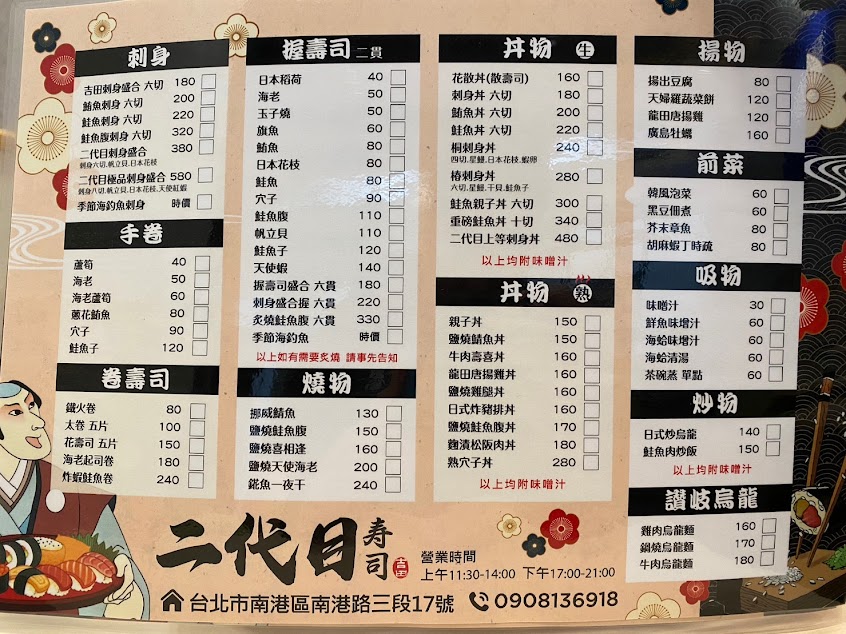 刺身
吉田刺身盛合 六切 180
鮪魚刺身 六切 200
鮭魚刺身 六切 220
鮭魚腹刺身 六切 320
二代目刺身盛合 380
刺身六切,帆立貝,日本花枝
二代目極品刺身盛合 580
刺身八切,帆立貝,日本花枝,天使紅蝦
季節海釣魚刺身 時價
手卷
蘆筍 40
海老 50
海老蘆筍 60
蔥花鮪魚 80
穴子 90
鮭魚子 120
卷壽司
鐵火卷 80
太卷 五片 100
花壽司 五片 150
海老起司卷 180
炸蝦鮭魚卷 240
握壽司 二貫
日本稻荷 40
海老 50
玉子燒 50
旗魚 60
鮪魚 80
日本花枝 80
鮭魚 80
穴子 90
鮭魚腹 110
帆立貝 110
鮭魚子 120
天使蝦 140
握壽司盛合 六貫 180
刺身盛合握 六貫 220
炙燒鮭魚腹 六貫 330
季節海釣魚 時價
以上如有需要炙燒 請事先告知
燒物
挪威鯖魚 130
鹽燒鮭魚腹 150
鹽燒喜相逢 160
鹽燒天使海老 200
魠魚一夜干 240
丼物 生
花散丼(散壽司) 160
刺身丼 六切 180
鮪魚丼 六切 200
鮭魚丼 六切 220
桐刺身丼 240
四切,星鰻,日本花枝,蝦卵
椿刺身丼 280
六切,星鰻,干貝,鮭魚子
鮭魚親子丼 六切 300
重磅鮭魚丼 十切 340
二代目上等刺身丼 480
以上均附味噌汁
丼物 熟
親子丼 150
鹽燒鯖魚丼 150
牛肉壽喜丼 150
龍田唐揚雞丼 150
鹽燒雞腿丼 160
日式炸豬排丼 160
鹽燒鮭魚腹丼 170
麴漬松阪肉丼 180
熟穴子丼 280
以上均附味噌汁
揚物
揚出豆腐 80
天婦羅蔬菜餅 120
龍田唐揚雞 120
廣島牡蠣 160
前菜
韓風泡菜 60
黑豆佃煮 60
芥末章魚 80
胡麻蝦丁時蔬 80
吸物
味噌汁 30
鮮魚味增汁 60
海蛤味增汁 60
海蛤清湯 60
茶碗蒸 單點 60
炒物
日式炒烏龍 140
鮭魚肉炒飯 150
以上均附味噌汁
讚岐烏龍
雞肉烏龍麵 160
鍋燒烏龍麵 170
牛肉烏龍麵 180
二代目 寿司
吉田
營業時間
上午11:30-14:00 下午17:00-21:00
台北市南港區南港路三段17號 0908136918